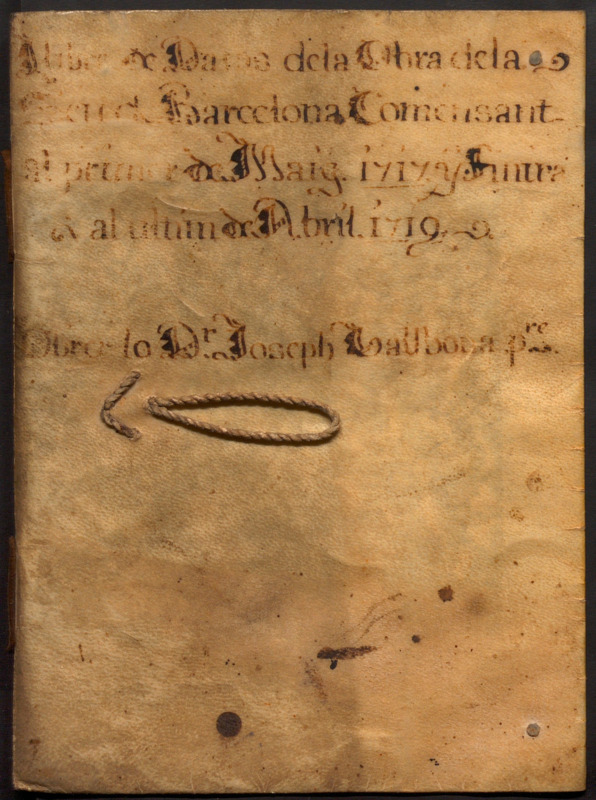 Llibre de Datas dela Obra dela
Seu de Barcelona Comensant
al primer de Maig. 1717 y finira
al ultim de Abril. 1719.
Obrer lo Dr. Joseph pre.